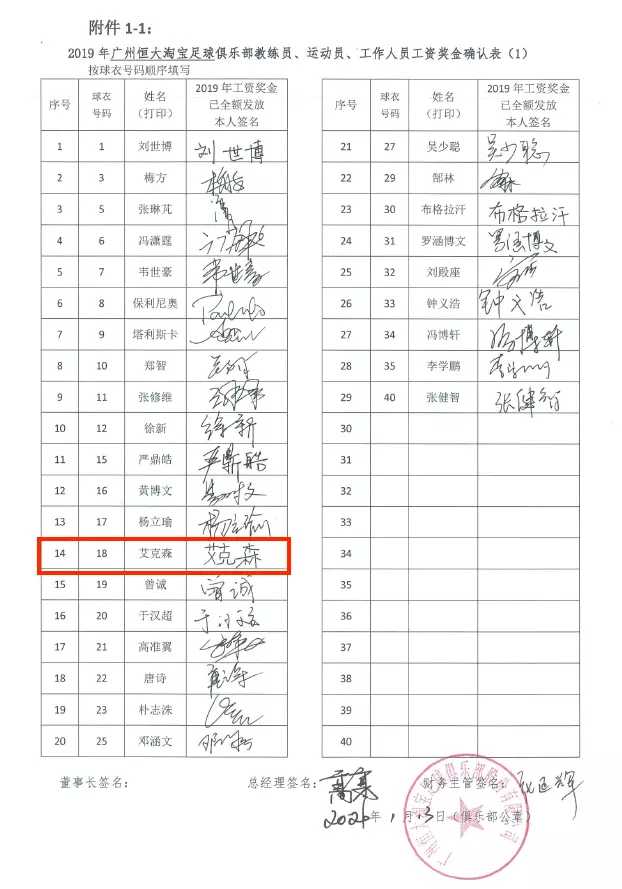 附件 1-1：
2019 年广州恒大淘宝足球俱乐部教练员、运动员、工作人员工资奖金确认表（1）
按球衣号码顺序填写
序号 球衣号码 姓名（打印） 2019 年工资奖金已全额发放本人签名
1 1 刘世博 刘世博
2 3 梅方 梅方
3 5 张琳芃
4 6 冯潇霆
5 7 韦世豪 韦世豪
6 8 保利尼奥
7 9 塔利斯卡
8 10 郑智
9 11 张修维
10 12 徐新 徐新
11 15 严鼎皓 严鼎皓
12 16 黄博文
13 17 杨立瑜 杨立瑜
14 18 艾克森 艾克森
15 19 曾诚 曾诚
16 20 于汉超
17 21 高准翼
18 22 唐诗
19 23 朴志洙
20 25 邓涵文
序号 球衣号码 姓名（打印） 2019 年工资奖金已全额发放本人签名
21 27 吴少聪 吴少聪
22 29 郜林
23 30 布格拉汗 布格拉汗
24 31 罗涵博文 罗涵博文
25 32 刘殿座
26 33 钟义浩 钟义浩
27 34 冯博轩 冯博轩
28 35 李学鹏
29 40 张健智 张健智
30
31
32
33
34
35
36
37
38
39
40
董事长签名： 总经理签名： 财务主管签名：
2020年 1月 13日（俱乐部公章）